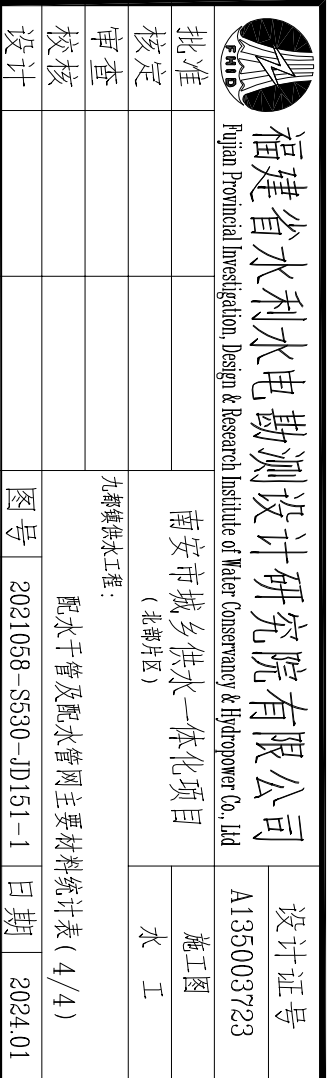 FHID
福建省水利水电勘测设计研究院有限公司
Fujian Provincial Investigation, Design & Research Institute of Water Conservancy & Hydropower Co., Ltd
设计证号
A135003723
批准
核定
审查
校核
设计
南安市城乡供水一体化项目
(北部片区)
施工图
水 工
九都镇供水工程:
配水干管及配水管网主要材料统计表(4/4)
图号
2021058-S530-JD151-1
日期
2024.01